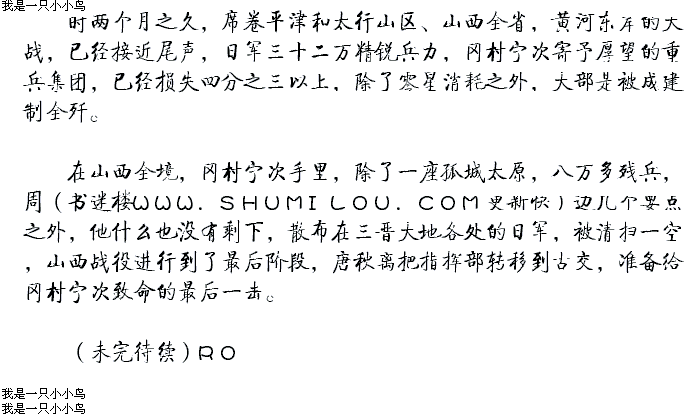 我是一只小小鸟
时两个月之久，席卷平津和太行山区、山西全省，黄河东岸的大
战，已经接近尾声，日军三十二万精锐兵力，冈村宁次寄予厚望的重
兵集团，已经损失四分之三以上，除了零星消耗之外，大部是被成建
制全歼。
在山西全境，冈村宁次手里，除了一座孤城太原，八万多残兵，
周（书迷楼WWW．SHUMILOU．COM更新快）边几个要点
之外，他什么也没有剩下，散布在三晋大地各处的日军，被清扫一空
，山西战役进行到了最后阶段，唐秋离把指挥部转移到古交，准备给
冈村宁次致命的最后一击。
（未完待续）RO
我是一只小小鸟
我是一只小小鸟